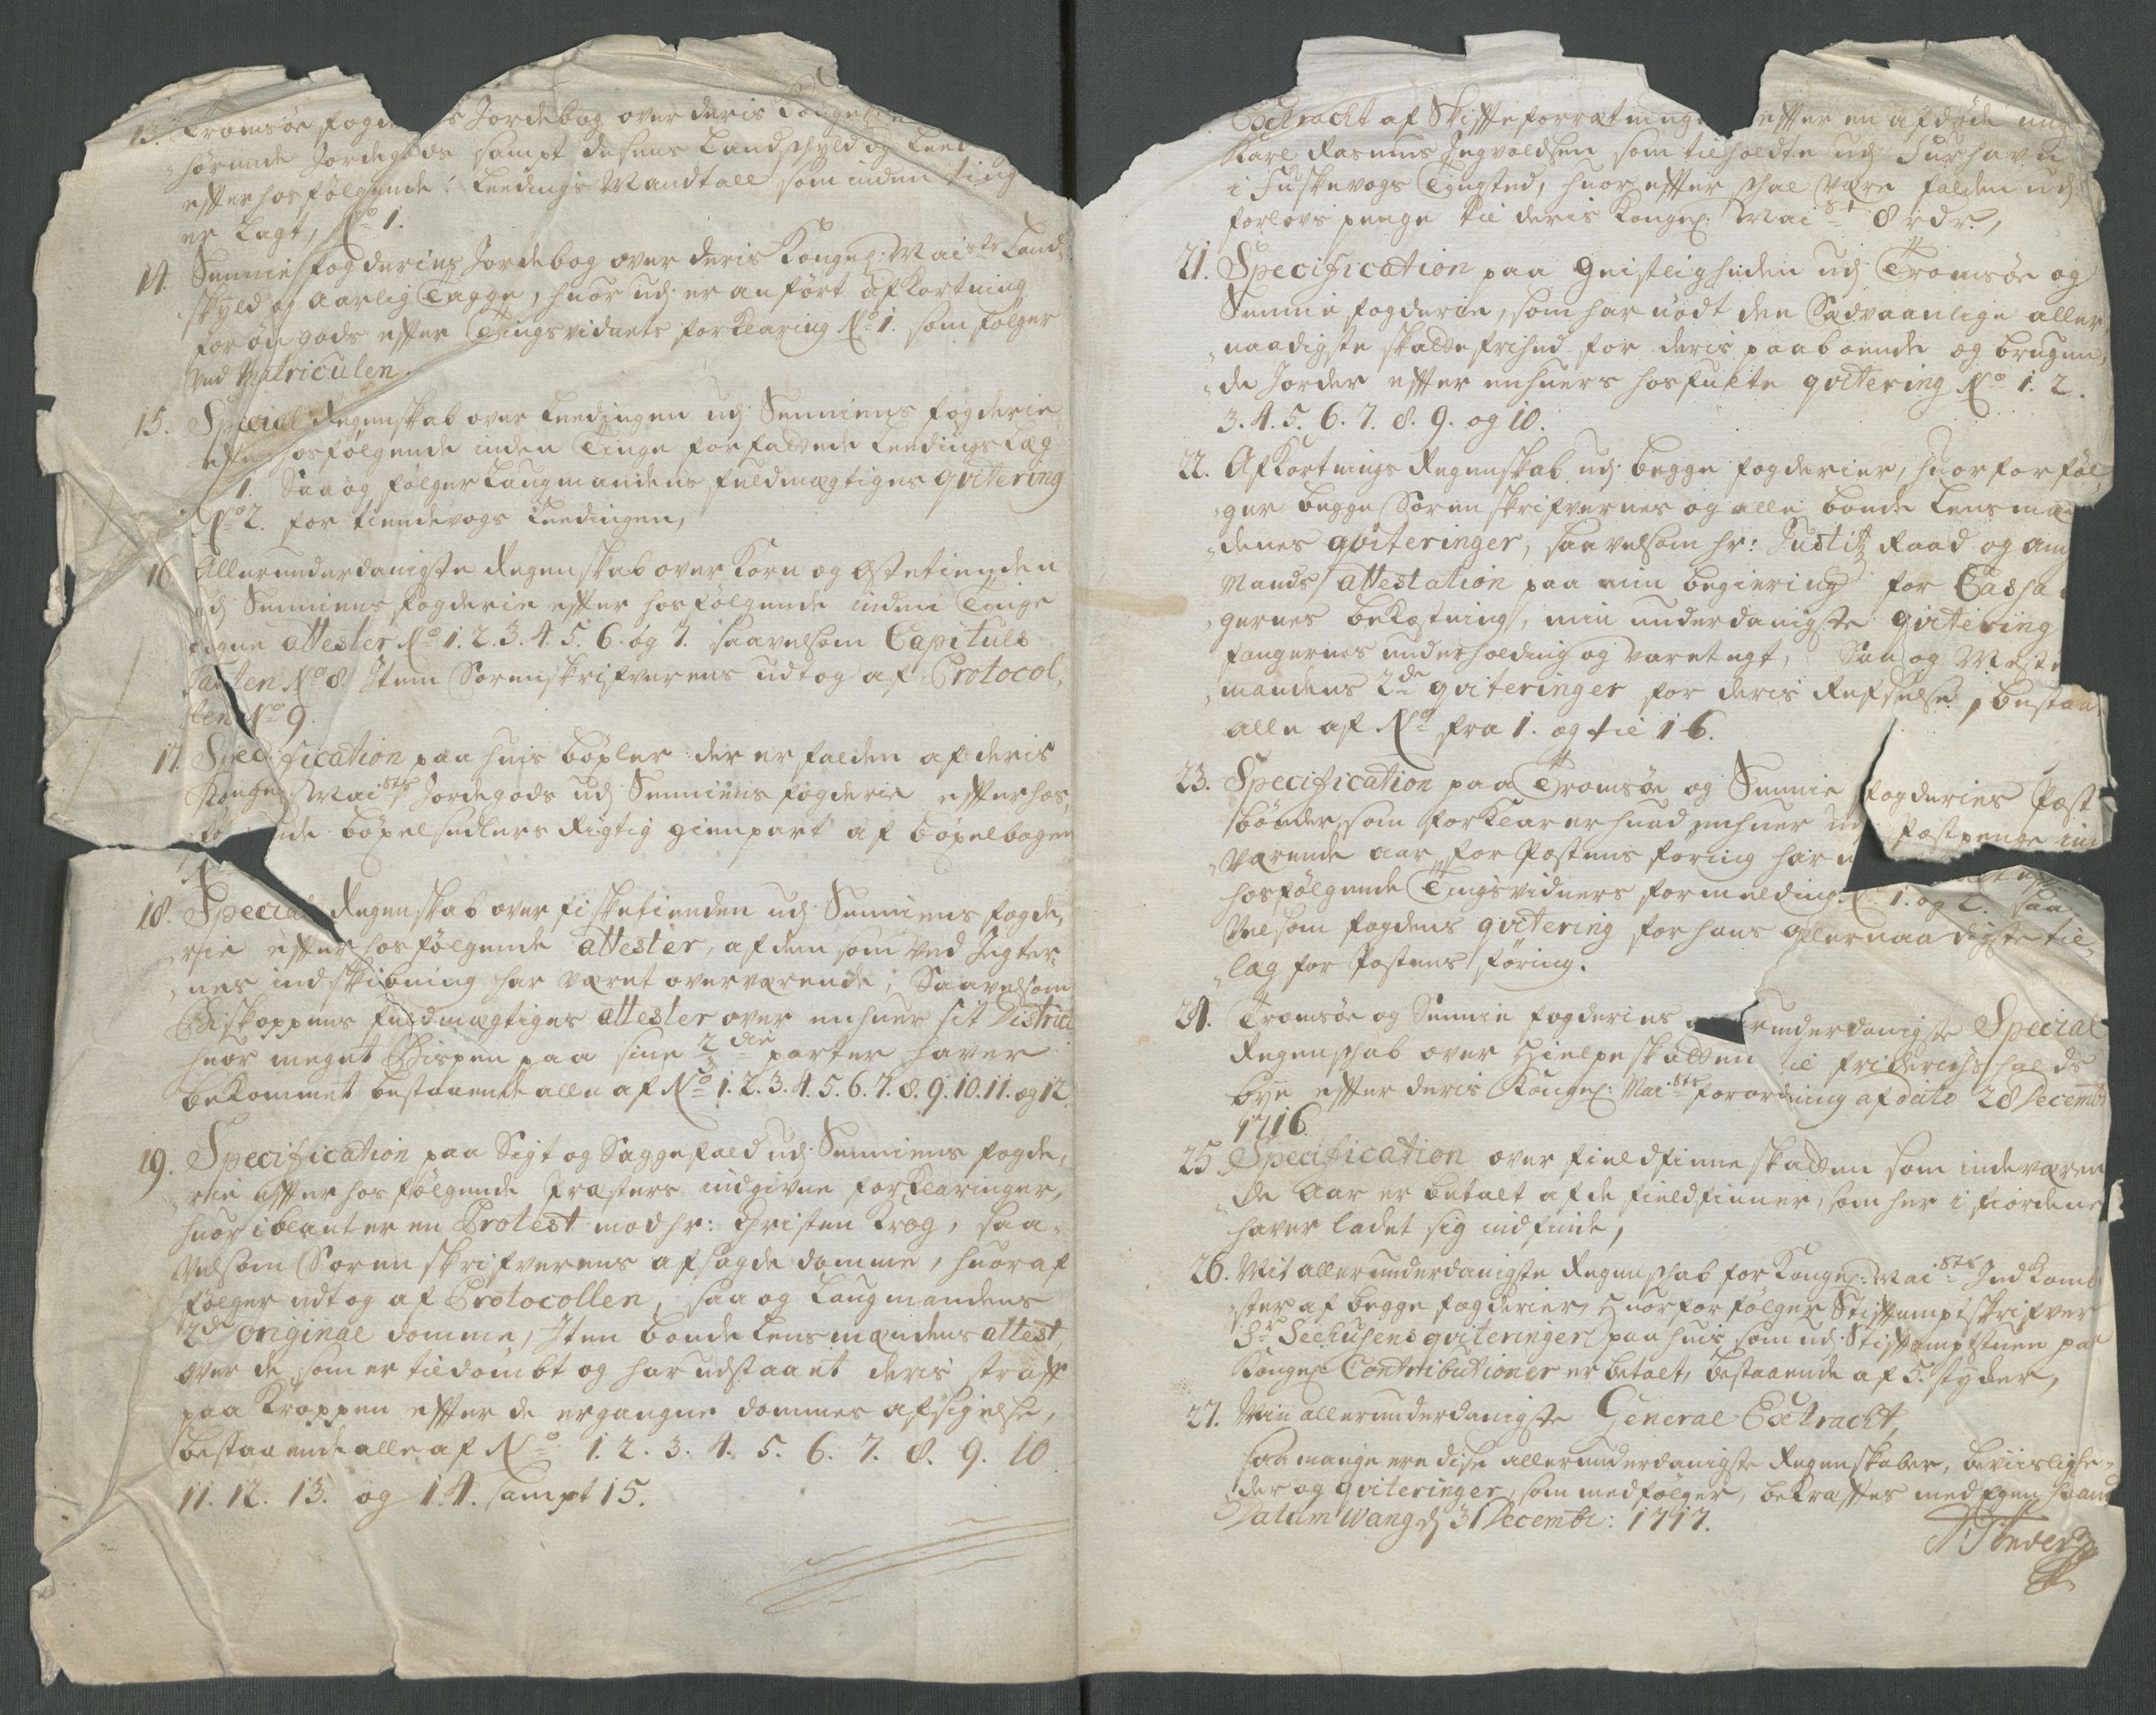 13. Tromsøe fogde s Jordebog over deris Kongel:
hørende Jordegods sampt desens Landschyld og Leed
efter hosfølgende Leedings Mandtall som inden ting
er Lagt, No 1.
14. Senniens fogderies Jordebog over deris Kongel: Maists Land¬
skyld og aarlig Tagge, huor udj er anført afKortning
for øde gods efter Tingsvidnets forKlaring No 1. som følger
ved Matriculen.
15. Special Regenskab over Leedingen udj Senniens fogderie
effter hosfølgende inden Tinge forfattede Leedings Læg
1. Saa og følger Laugmandens fuldmægtiges qvitering
No 2. for tiendevogs Leedingen,
16 Allerunderdanigste Regenskab over Korn og Ostetienden
udj Senniens fogderie effter hosfølgende inden Tinge
tagne attester No 1. 2. 3. 4. 5. 6. og 7. saavelsom Capituls
Taxten No 8. Item Sorenskrifverens udtog af Protocol,
len No 9.
17. Specification paa huis bøxler der er falden af deris
Kongel: Maists Jordegods udj Senniens fogderie effter hos,
fø ende bøxelsedlers Rigtig gienpart af bøxelbogen
18. Special Regenskab over fisketienden udj Senniens fogde,
rie effter hosfølgende attester, af dem som ved Jegter¬
nes indskibning har været overværende, Saavelsom
Biskoppens fuldmægtiges attester over enhuer sit District
huor meget Bispen paa sine 2/3 die parter haver
beKommet bestaaende alle af No 1. 2. 3. 4. 5. 6. 7. 8. 9. 10. 11. og 12.
19. Specification paa Sigt og Saggefald udj Senniens fogde,
rie effter hosfølgende Præsters indgivne forKlaringer,
huor iblant er en Protest mod hr: Christen Krog, saa¬
velsom Sorenskrifverens afsagde domme, huoraf
følger udtog af Protocollen, saa og Laugmandens
2de original domme, Item bonde Lensmændens attest
over de som er tildømbt og har udstaaet deris straff
paa Kroppen effter de ergangne dommes afsigelse,
bestaaende alle af No 1. 2. 3. 4. 5. 6. 7. 8. 9. 10
11. 12. 13. og 14. sampt 15.
Extracht af Skiffteforretning effter en afdøde ung
Karl Rasmus Ingvoldsen som tilholdte udj
i Tuskevogs Tingsted, huor effter schal være falden udj
forlovs penge til deris Kongel: Maist 8 rdr.,
21. Specification paa Geistligheden udj Tromsøe og
Sennie fogderie, som har nødt den Sædvaanlige aller
naadigste skattefrihed for deris paaboende og brugen,
de Jorder effter enhuers hosfuite qvitering No 1. 2.
3. 4. 5. 6. 7. 8. 9. og 10.
22. AfKortnings Regenskab udj begge fogderier, huorfor føl
ger begge Sorenskrifvernes og alle bonde Lensmæ
denes qviteringer, saavelsom hr: Justitz Raad og am
Mands attestation paa min begiering for
gernes beKostning, min underdanigste qvitering
fangernes underholding og varetegt, Saa og Meste
mandens 2de qviteringer for deris Refselse, bestaa
alle af No fra 1. og til 16.
23. Specification paa Tromsøe og Sennie fogderies Post
bønder, som forKlarer huad enhuer ud Postpenge in
værende aar for Postens føring har
hosfølgende Tingsvidners formelding No 1. og 2. saa
velsom fogdens qvitering for hans allernaadigste til¬
lag for Postens føring.
24. Tromsøe og Sennie fogderies runderdanigste Special
Regenschab over Hielpeskatten til friderichshalds
bye effter deris Kongel: Maists forordning af dato 28 Decemb
1716.
25. Specification over fieldfinneskatten som indeværen
de Aar er betalt af de fieldfinner, som her i fiordene
haver ladet sig indfinde,
26. Mit allerunderdanigste Regenschab for Kongel: Maists IndKom
ster af begge fogderier, Huorfor følger Stiftamptskrifver
Sr Seehusens qviteringer paa huis som udj Stiftamptstuen paa
Kongel: Contributioner er betalt, bestaaende af 5. styker,
27. Min allerunderdanigste General Extracht,
saa mange ere disse allerunderdanigste Regenskaber, beviislighe¬
der og qviteringer, som medfølger, beKræfftes med Egen haand
Datum Wang d 31 Decembr: 1717.